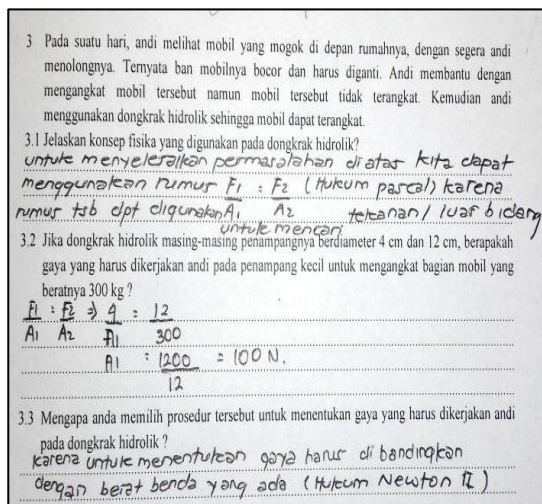 3 Pada suatu hari, andi melihat mobil yang mogok di depan rumahnya, dengan segera andi
menolongnya. Ternyata ban mobilnya bocor dan harus diganti. Andi membantu dengan
mengangkat mobil tersebut namun mobil tersebut tidak terangkat. Kemudian andi
menggunakan dongkrak hidrolik sehingga mobil dapat terangkat.
3.1 Jelaskan konsep fisika yang digunakan pada dongkrak hidrolik?
untuk menyelesaikan permasalahan diatas kita dapat
menggunakan rumus F1 : F2 (Hukum pascal) karena
rumus tsb dpt digunakan A1 A2 tekanan / luas bidang
untuk mencari
3.2 Jika dongkrak hidrolik masing-masing penampangnya berdiameter 4 cm dan 12 cm, berapakah
gaya yang harus dikerjakan andi pada penampang kecil untuk mengangkat bagian mobil yang
beratnya 300 kg ?
F1 : F2 => 4 : 12
A1 A2 A1 300
A1 : 1200 = 100 N.
12
3.3 Mengapa anda memilih prosedur tersebut untuk menentukan gaya yang harus dikerjakan andi
pada dongkrak hidrolik ?
karena untuk menentukan gaya harus di bandingkan
dengan berat benda yang ada (Hukum Newton II)